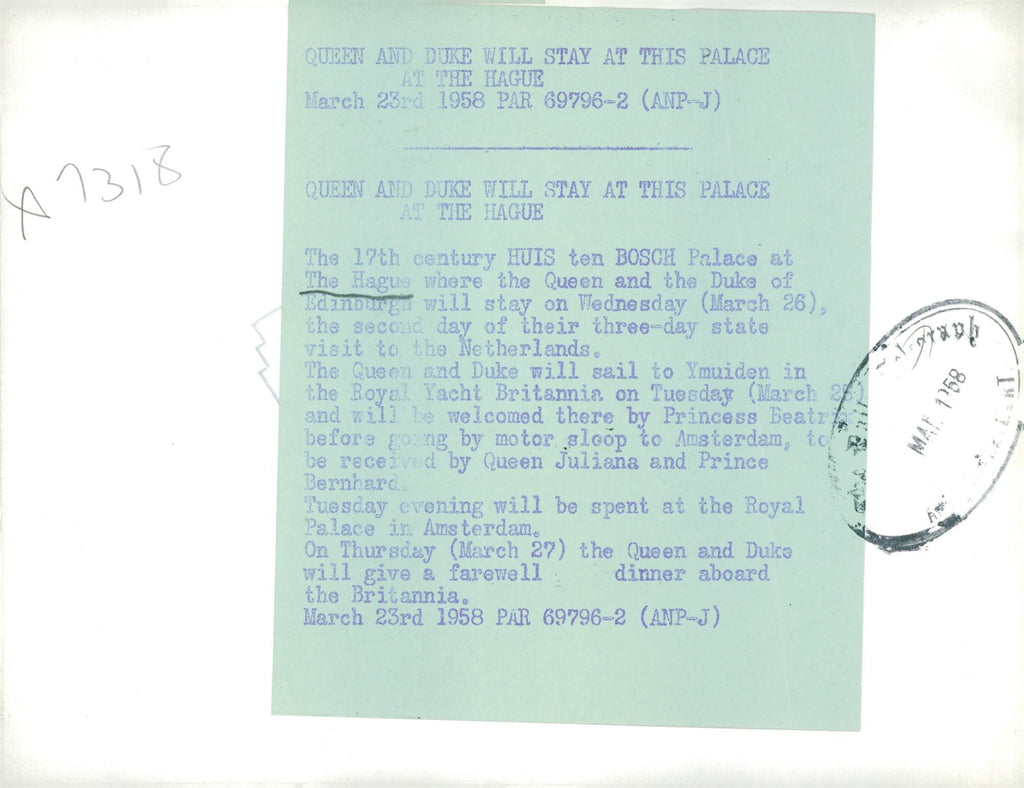 QUEEN AND DUKE WILL STAY AT THIS PALACE
AT THE HAGUE
March 23rd 1958 PAR 69796-2 (ANP-J)
QUEEN AND DUKE WILL STAY AT THIS PALACE
AT THE HAGUE
The 17th century HUIS ten BOSCH Palace at
The Hague where the Queen and the Duke of
Edinburgh will stay on Wednesday (March 26),
the second day of their three-day state
visit to the Netherlands.
The Queen and Duke will sail to Ymuiden in
the Royal Yacht Britannia on Tuesday (March 25)
and will be welcomed there by Princess Beatrix
before going by motor sloop to Amsterdam, to
be received by Queen Juliana and Prince
Bernhard.
Tuesday evening will be spent at the Royal
Palace in Amsterdam.
On Thursday (March 27) the Queen and Duke
will give a farewell dinner aboard
the Britannia.
March 23rd 1958 PAR 69796-2 (ANP-J)
7318